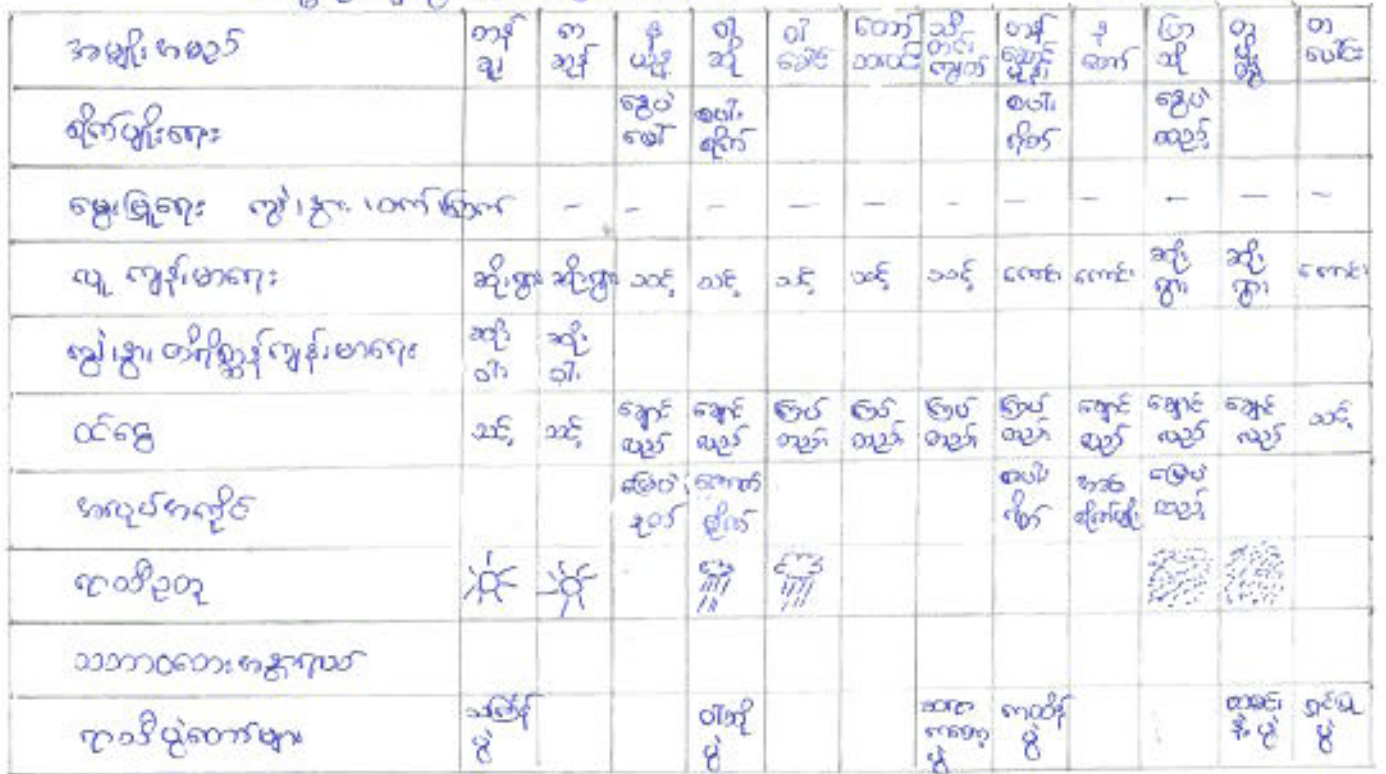 အမျိုးအမည် တန်ခူး ကဆုန် နယုန် ဝါဆို ဝါခေါင် တော်သလင်း သီတင်းကျွတ် တန်ဆောင်မုန်း နတ်တော် ပြာသို တပို့တွဲ တပေါင်း
စိုက်ပျိုးရေး မြေပဲဖော် စပါးစိုက် စပါးရိတ် မြေပဲထည့်
မွေးမြူရေး ကျွဲ၊ နွား၊ ဝက်၊ ကြက် – – – – – – – – – – –
လူ ကျန်းမာရေး ဆိုးရွား ဆိုးရွား သင့် သင့် သင့် သင့် သင့် ကောင်း ကောင်း ဆိုးရွား ဆိုးရွား ကောင်း
ကျွဲ၊ နွား၊ တိရိစ္ဆာန်ကျန်းမာရေး ဆိုးဝါး ဆိုးဝါး
ဝင်ငွေ သင့် သင့် ချောင်လည် ချောင်လည် ကြပ်တည်း ကြပ်တည်း ကြပ်တည်း ကြပ်တည်း ချောင်လည် ချောင်လည် ချောင်လည် သင့်
အလုပ်အကိုင် မြေပဲနုတ် စပါးရိတ် မြေပဲထည့်
ရာသီဥတု
သဘာဝဘေးအန္တရာယ်
ရာသီပွဲတော်များ သင်္ကြန်ပွဲ ဝါဆိုပွဲ ဆရာကတော့ပွဲ ကထိန်ပွဲ ထမင်းနဲပွဲ ရှင်ပြုပွဲ